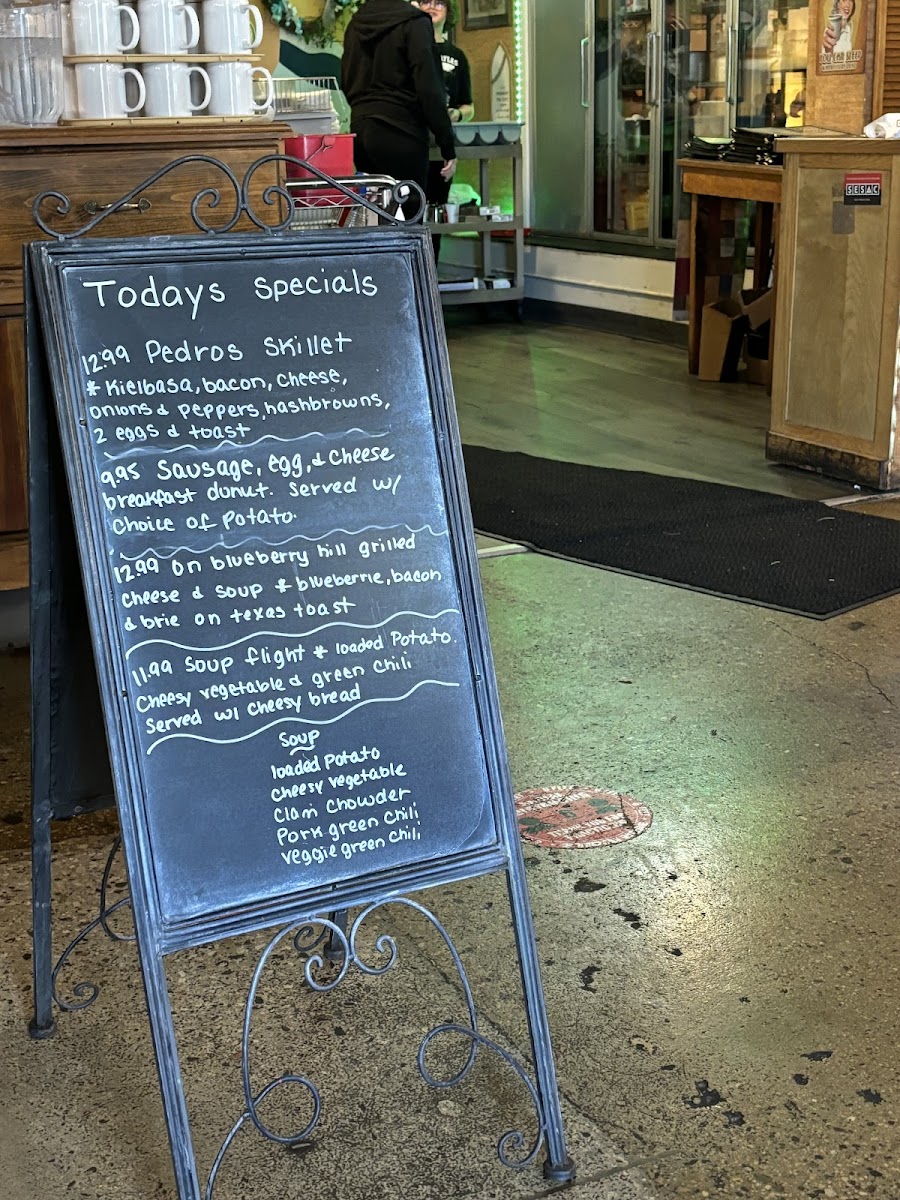 Todays Specials
12.99 Pedros Skillet
* Kielbasa, bacon, cheese,
onions & peppers, hashbrowns,
2 eggs & toast
9.95 Sausage, egg, & cheese
breakfast donut. Served w/
choice of potato.
12.99 On blueberry hill grilled
cheese & soup * blueberrie, bacon
& brie on texas toast
11.99 Soup flight * loaded Potato.
Cheesy vegetable & green chili
Served w/ cheesy bread
Soup
loaded potato
cheesy vegetable
Clam Chowder
Pork green chili
veggie green chili
SESAC